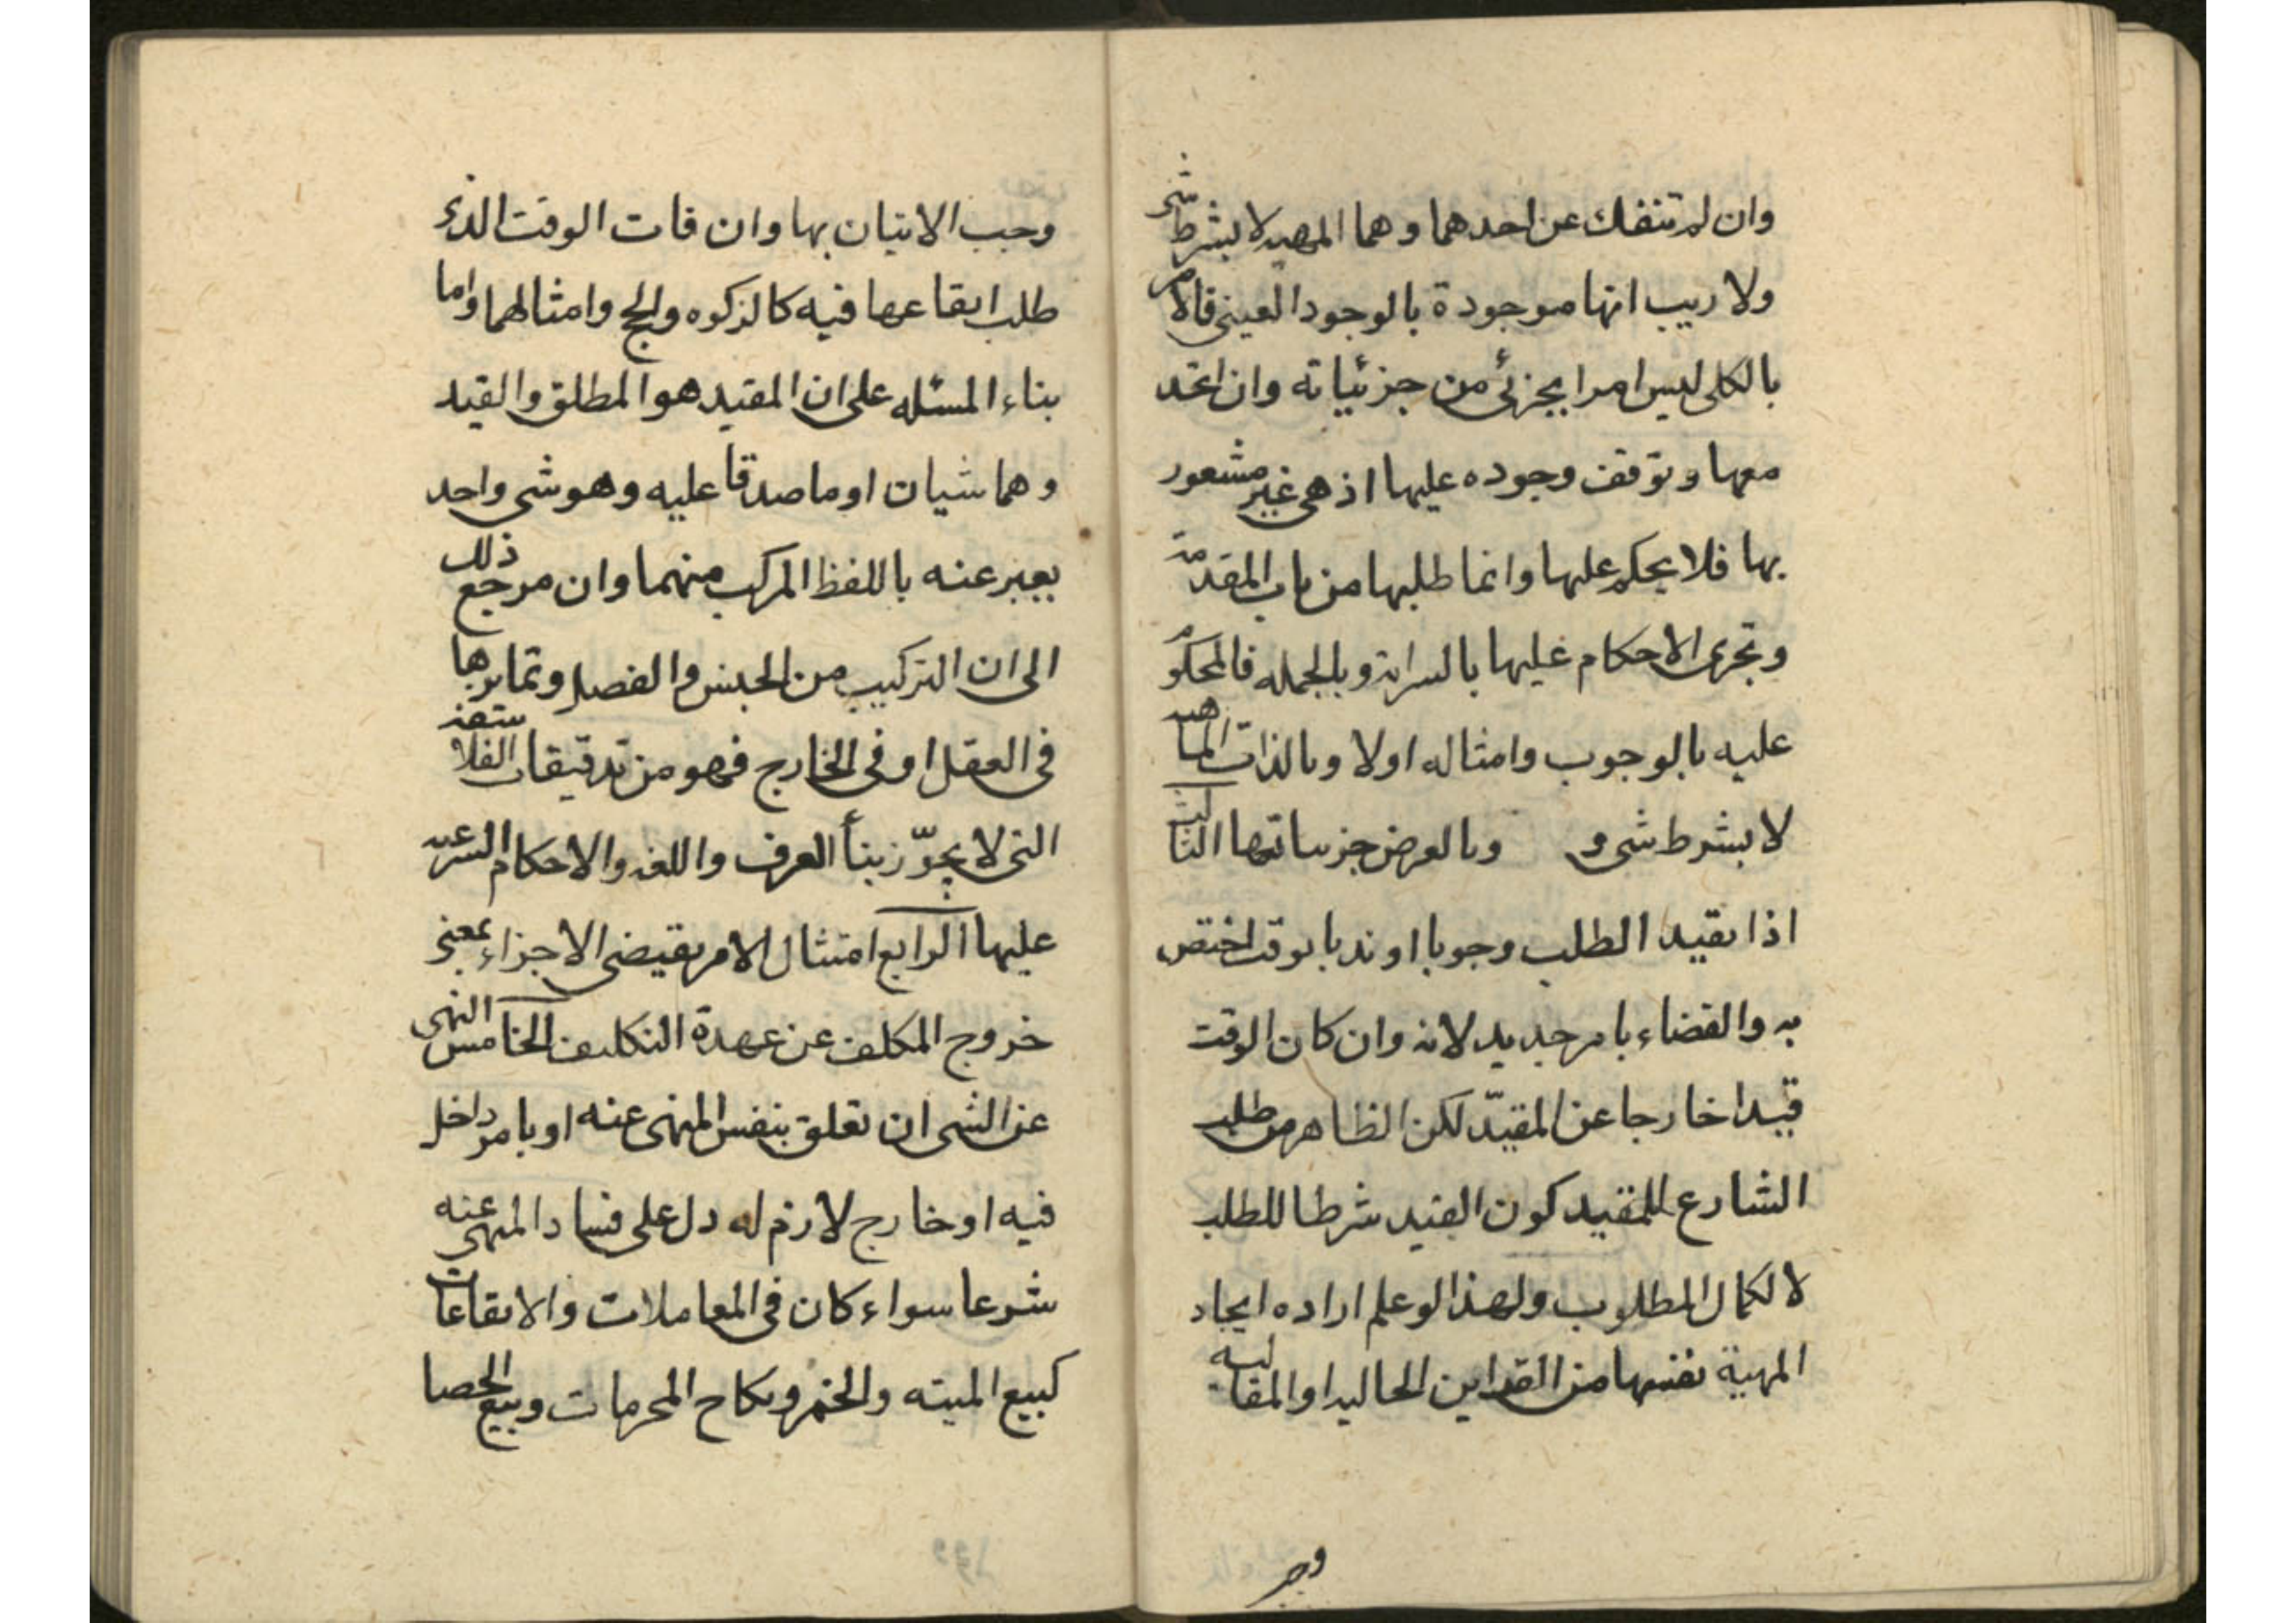 وان لم تنفك عن احدهما وهما المهيه لا بشرط شئ
ولا ريب انها موجودة بالوجود العيني فالامر
بالكلي ليس امرا بجزئي من جزئياته وان اتحد
معها وتوقف وجوده عليها اذ هي غير مشعور
بها فلا يحكم عليها وانما طلبها من باب المقدّمة
وتجري الاحكام عليها بالسراية وبالجمله فالمحكوم
عليه بالوجوب وامثاله اولا وبالذات الماهيه
لا بشرط شئ و وبالعرض جزيياتها الثالث
اذا تقيد الطلب وجوبا او ندبا بوقت اختص
به والقضاء بامر جديد لانه وان كان الوقت
قيدا خارجا عن المقيّد لكن الظاهر من طلب
الشارع للمقيد كون القيد شرطا للطلب
لا لكمال المطلوب ولهذا لو علم اراده ايجاد
المهية نفسها من القراين الحاليه او المقاليه
وجب
وجب الاتيان بها وان فات الوقت الذي
طلب ايقاعها فيه كالزكوه والحج وامثالهما واما
بناء المسئله على ان المقيد هو المطلق والقيد
وهما شيان او ما صدقا عليه وهو شي واحد
يعبر عنه باللفظ المركب منهما وان مرجع ذلك
الى ان التركيب من الجنس والفصل وتمايزها
في العقل او في الخارج فهو من تدقيقات الفلاسفه
التي لا يجوّز بنأ العرف واللغه والاحكام الشرعيه
عليها الرابع امتثال الامر يقيضى الاجزاء بمعنى
خروج المكلف عن عهدة التكليف الخامس النهى
عن الشى ان تعلق بنفس المنهى عنه او بامر داخل
فيه او خارج لازم له دل على فساد المنهى عنه
شرعا سواء كان في المعاملات والايقاعات
كبيع الميته والخمر ونكاح المحرمات وبيع الحصا